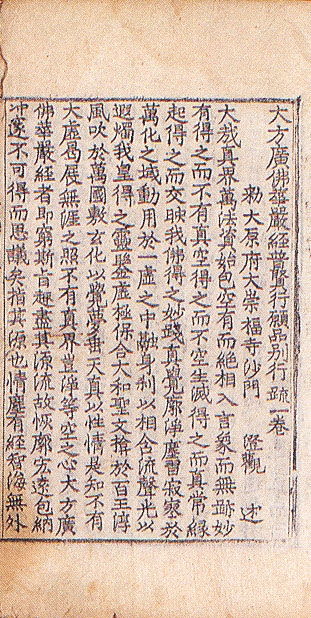 大方廣佛華嚴經普賢行願品別行疏一卷
勅大原府大崇福寺沙門 澄觀 述
大哉真界萬法資始包空有而絕相入言象而無跡妙
有得之而不有真空得之而不空生滅得之而真常緣
起得之而交暎我佛得之妙踐真覺廓淨塵習寂寥於
萬化之域動用於一虛之中融身刹以相含流聲光以
遐燭我皇得之靈鑒虛極保合大和聖文掩於百王淳
風吹於萬國敷玄化以覺夢垂天真以性情是知不有
大虛曷展無涯之照不有真界豈淨等空之心大方廣
佛華嚴經者即窮斯旨趣盡其源流故恢廓宏遠包納
冲邃不可得而思議矣指其源也情塵有經智海無外